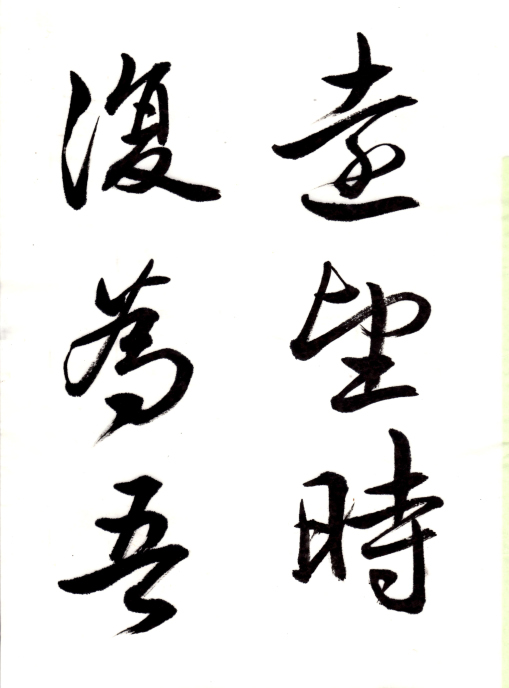 遠望時
復為吾